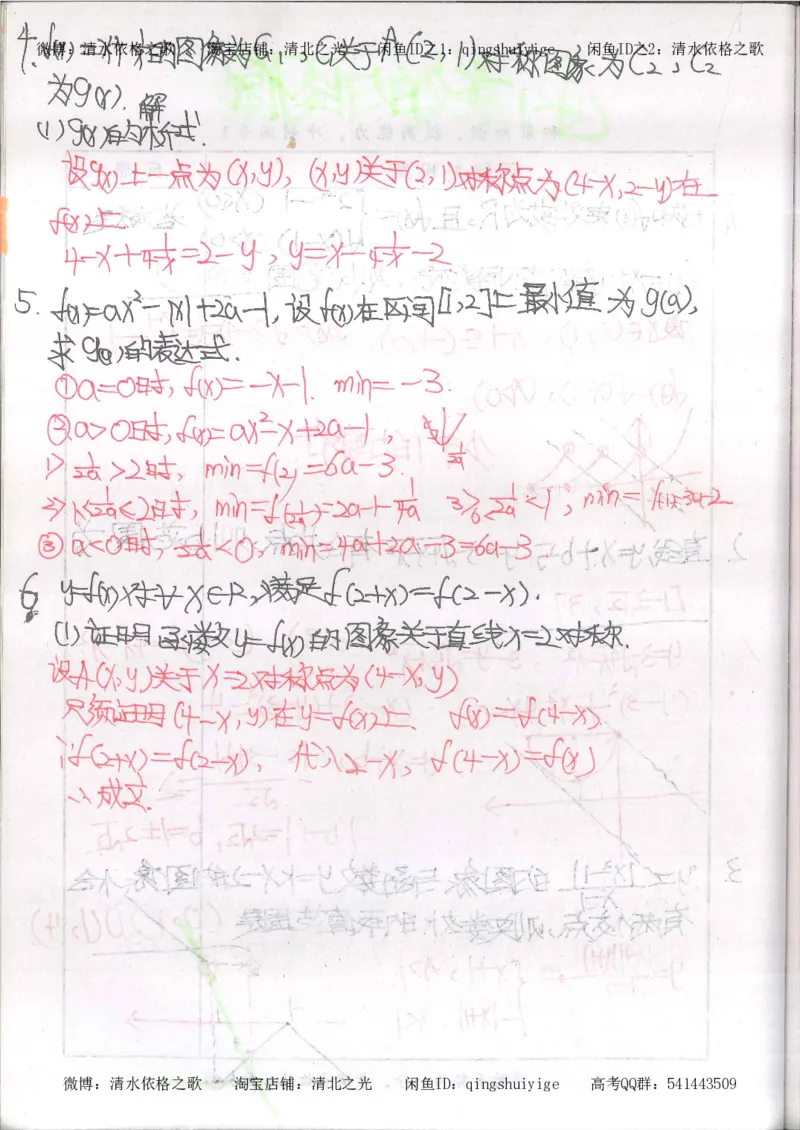 微博：清水依格之歌 淘宝店铺：清北之光 闲鱼ID之1：qingshuiyige 闲鱼ID之2：清水依格之歌
4. 的图象为C₁，C₁关于A(2,1)对称图象为C₂，C₂
为g(x).
(1) g(x)的解析式.
设g(x)上一点为(x,y)，(x,y)关于(2,1)对称点为(4-x,2-y)在
f(x)上
4-x+1/(4-x)=2-y，y=x-1/(4-x)-2
5. f(x)=ax²-|x|+2a-1，设f(x)在区间[1,2]上最小值为g(a)，
求g(a)的表达式.
①a=0时，f(x)=-x-1. min=-3.
②a>0时，f(x)=ax²-x+2a-1，
1> 1/2a>2时，min=f(2)=6a-3.
2> 1<1/2a<2时，min=f(1/2a)=2a-1-1/4a 3> 1/2a<1，min=f(1)=3a-2
③a<0时，1/2a<0，min=4a+2a-3=6a-3
6. y=f(x)对∀x∈R，满足f(2+x)=f(2-x).
(1)证明函数y=f(x)的图象关于直线x=2对称.
设A(x,y)关于x=2对称点为(4-x,y)
只须证明(4-x,y)在y=f(x)上. f(x)=f(4-x).
∵f(2+x)=f(2-x)，代入2-x，f(4-x)=f(x)
∴成立.
微博：清水依格之歌 淘宝店铺：清北之光 闲鱼ID：qingshuiyige 高考QQ群：541443509